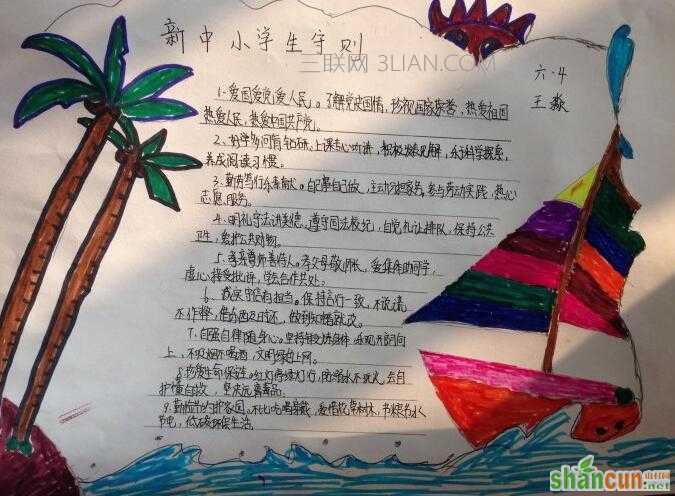 新中小学生守则
三联网 3LIAN.COM
六.4
王淼
1.爱国爱党爱人民。了解党史国情,珍视国家荣誉,热爱祖国
热爱人民,热爱中国共产党。
2.好学多问肯钻研。上课专心听讲,积极发表见解,乐于科学探索,
养成阅读习惯。
3.勤劳笃行乐奉献。自己事自己做,主动分担家务,参与劳动实践,热心
志愿服务。
4.明礼守法讲美德。遵守国法校纪,自觉礼让排队,保持公共
卫生,爱护公共财物。
5.孝亲尊师善待人。孝父母敬师长,爱集体助同学,
虚心接受批评,学会合作共处。
6.诚实守信有担当。保持言行一致,不说谎
不作弊,借东西及时还,做到知错就改。
7.自强自律健身心。坚持锻炼身体,乐观开朗向
上,不吸烟不喝酒,文明绿色上网。
8.珍爱生命保安全。红灯停绿灯行,防溺水不玩火,会自
护懂自救,坚决远离毒品。
9.勤俭节约护家园。不比吃喝穿戴,爱惜花草树木,节粮节水
节电,低碳环保生活。
shancun
.net